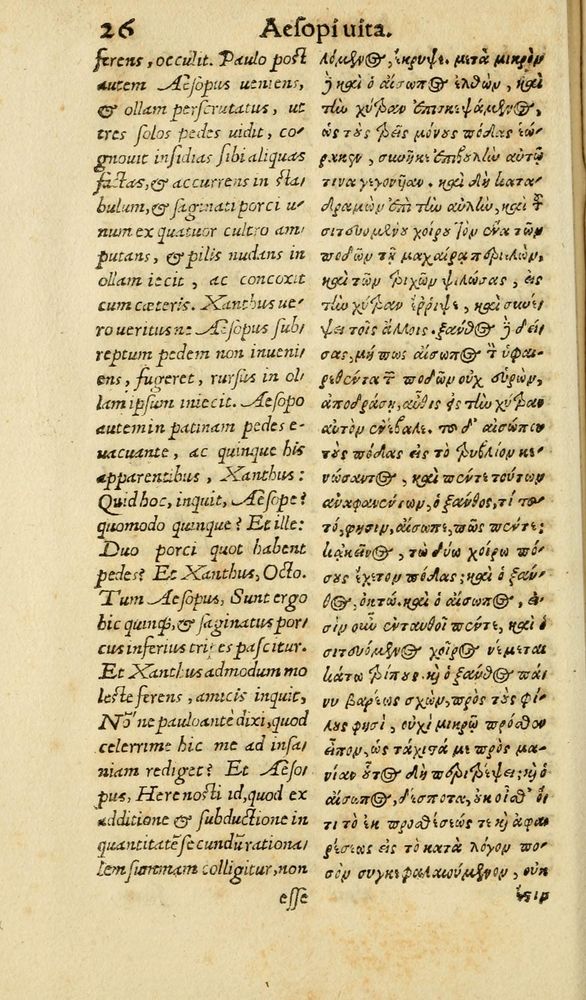 26 Aesopi uita.
ferens, occulit. Paulo post
autem Aesopus ueniens,
& ollam perscrutatus, ut
tres solos pedes uidit, co-
gnouit insidias sibi aliquas
factas, & accurrens in sta/
bulum, & saginati porci u-
num ex quatuor cultro am
putans, & pilis nudans in
ollam iecit, ac concoxit
cum cæteris. Xanthus ue/
ro ueritus ne Aesopus sub/
reptum pedem non inueni/
ens, fugeret, rursus in ol/
lam ipsum iniecit. Aesopo
autem in patinam pedes e-
uacuante, ac quinque his
apparentibus, Xanthus:
Quid hoc, inquit, Aesope?
quomodo quinque? Et ille:
Duo porci quot habent
pedes? Et Xanthus, Octo.
Tum Aesopus, Sunt ergo
hic quinq;, & saginatus por/
cus inferius tripes pascitur.
Et Xanthus admodum mo
leste ferens, amicis inquit,
Nõ ne paulo ante dixi, quod
celerrime hic me ad insa/
niam rediget? Et Aeso/
pus, Here nosti id, quod ex
additione & subductione in
quantitatẽ secundũ rationa/
lem summam colligitur, non
esse
λόμενος, ἔκρυψε. μετὰ μικρὸν
ἢ καὶ ὁ αἴσωπος ἐλθὼν, καὶ
τὴν χύτραν ἐπισκεψάμενος,
ὡς τοὺς τρεῖς μόνους πόδας ἑώ-
ρακεν, συνῆκε ἐπιβουλὴν αὐτῷ
τινα γεγονῆαν. καὶ δὴ κατα-
δραμὼν ἐπὶ τὴν αὐλὴν, καὶ τ
σιτευομένου χοίρου τὸν ἕνα τῶν
ποδῶν τῇ μαχαίρᾳ περιελὼν,
καὶ τῶν τριχῶν ψιλώσας, εἰς
τὴν χύτραν ἔρριψε, καὶ συνέ-
ψει τοῖς ἄλλοις. ξανθος ἢ δεί-
σας, μή πως αἴσωπος τ ὑφαι-
ρεθέντα τ ποδῶν οὐχ εὑρὼν,
ἀποδράσῃ, αὖθις εἰς τὴν χύτραν
αὐτὸν ἐνέβαλε. τοῦ δ' αἰσώπου
τοὺς πόδας εἰς τὸ τρυβλίον κε-
νώσαντος, καὶ πέντε τούτων
ἀναφανέντων, ὁ ξανθος, τί το-
τό, φησιν, αἴσωπε, πῶς πέντε;
κἀκεῖνος, τὼ δύω χοίρω πό-
σους ἔχετον πόδας; καὶ ὁ ξαν-
θος, ὀκτώ. καὶ ὁ αἴσωπος, εἰ-
σὶν οὖν ἐνταυθοῖ πέντε, καὶ ὁ
σιτευόμενος χοῖρος νέμεται
κάτω τρίπους. κ ὁ ξανθος πά-
νυ βαρέως σχὼν, πρὸς τοὺς φί-
λους φησὶ, οὐχὶ μικρῷ πρόσθεν
εἶπον, ὡς τάχιστά με πρὸς μα-
νίαν οὗτος δὴ περιτρέψει; κ ὁ
αἴσωπος, δέσποτα, οὐκ οἶσθ' ὅ
τι τὸ ἐκ προσθέσεώς τε κ ἀφαι-
ρέσεως εἰς τὸ κατὰ λόγον πο-
σὸν συγκεφαλαιούμενον, οὐκ
ἔστιν